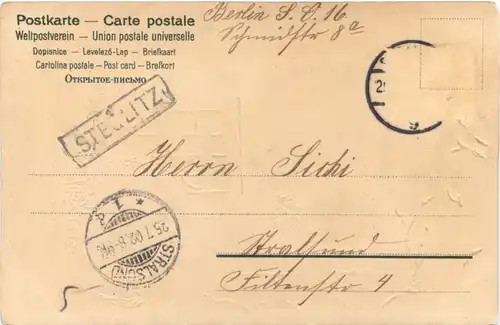 Postkarte — Carte postale
Weltpostverein — Union postale universelle
Dopisnice — Levelező-Lap — Briefkaart
Cartolina postale — Post card — Brefkort
Открытое-письмо
Berlin S. O. 16.
Schmidstr 8a
STEGLITZ
Herrn Sichi
STRALSUND
25.7.02.8-9
Stralsund
Filterstr 4